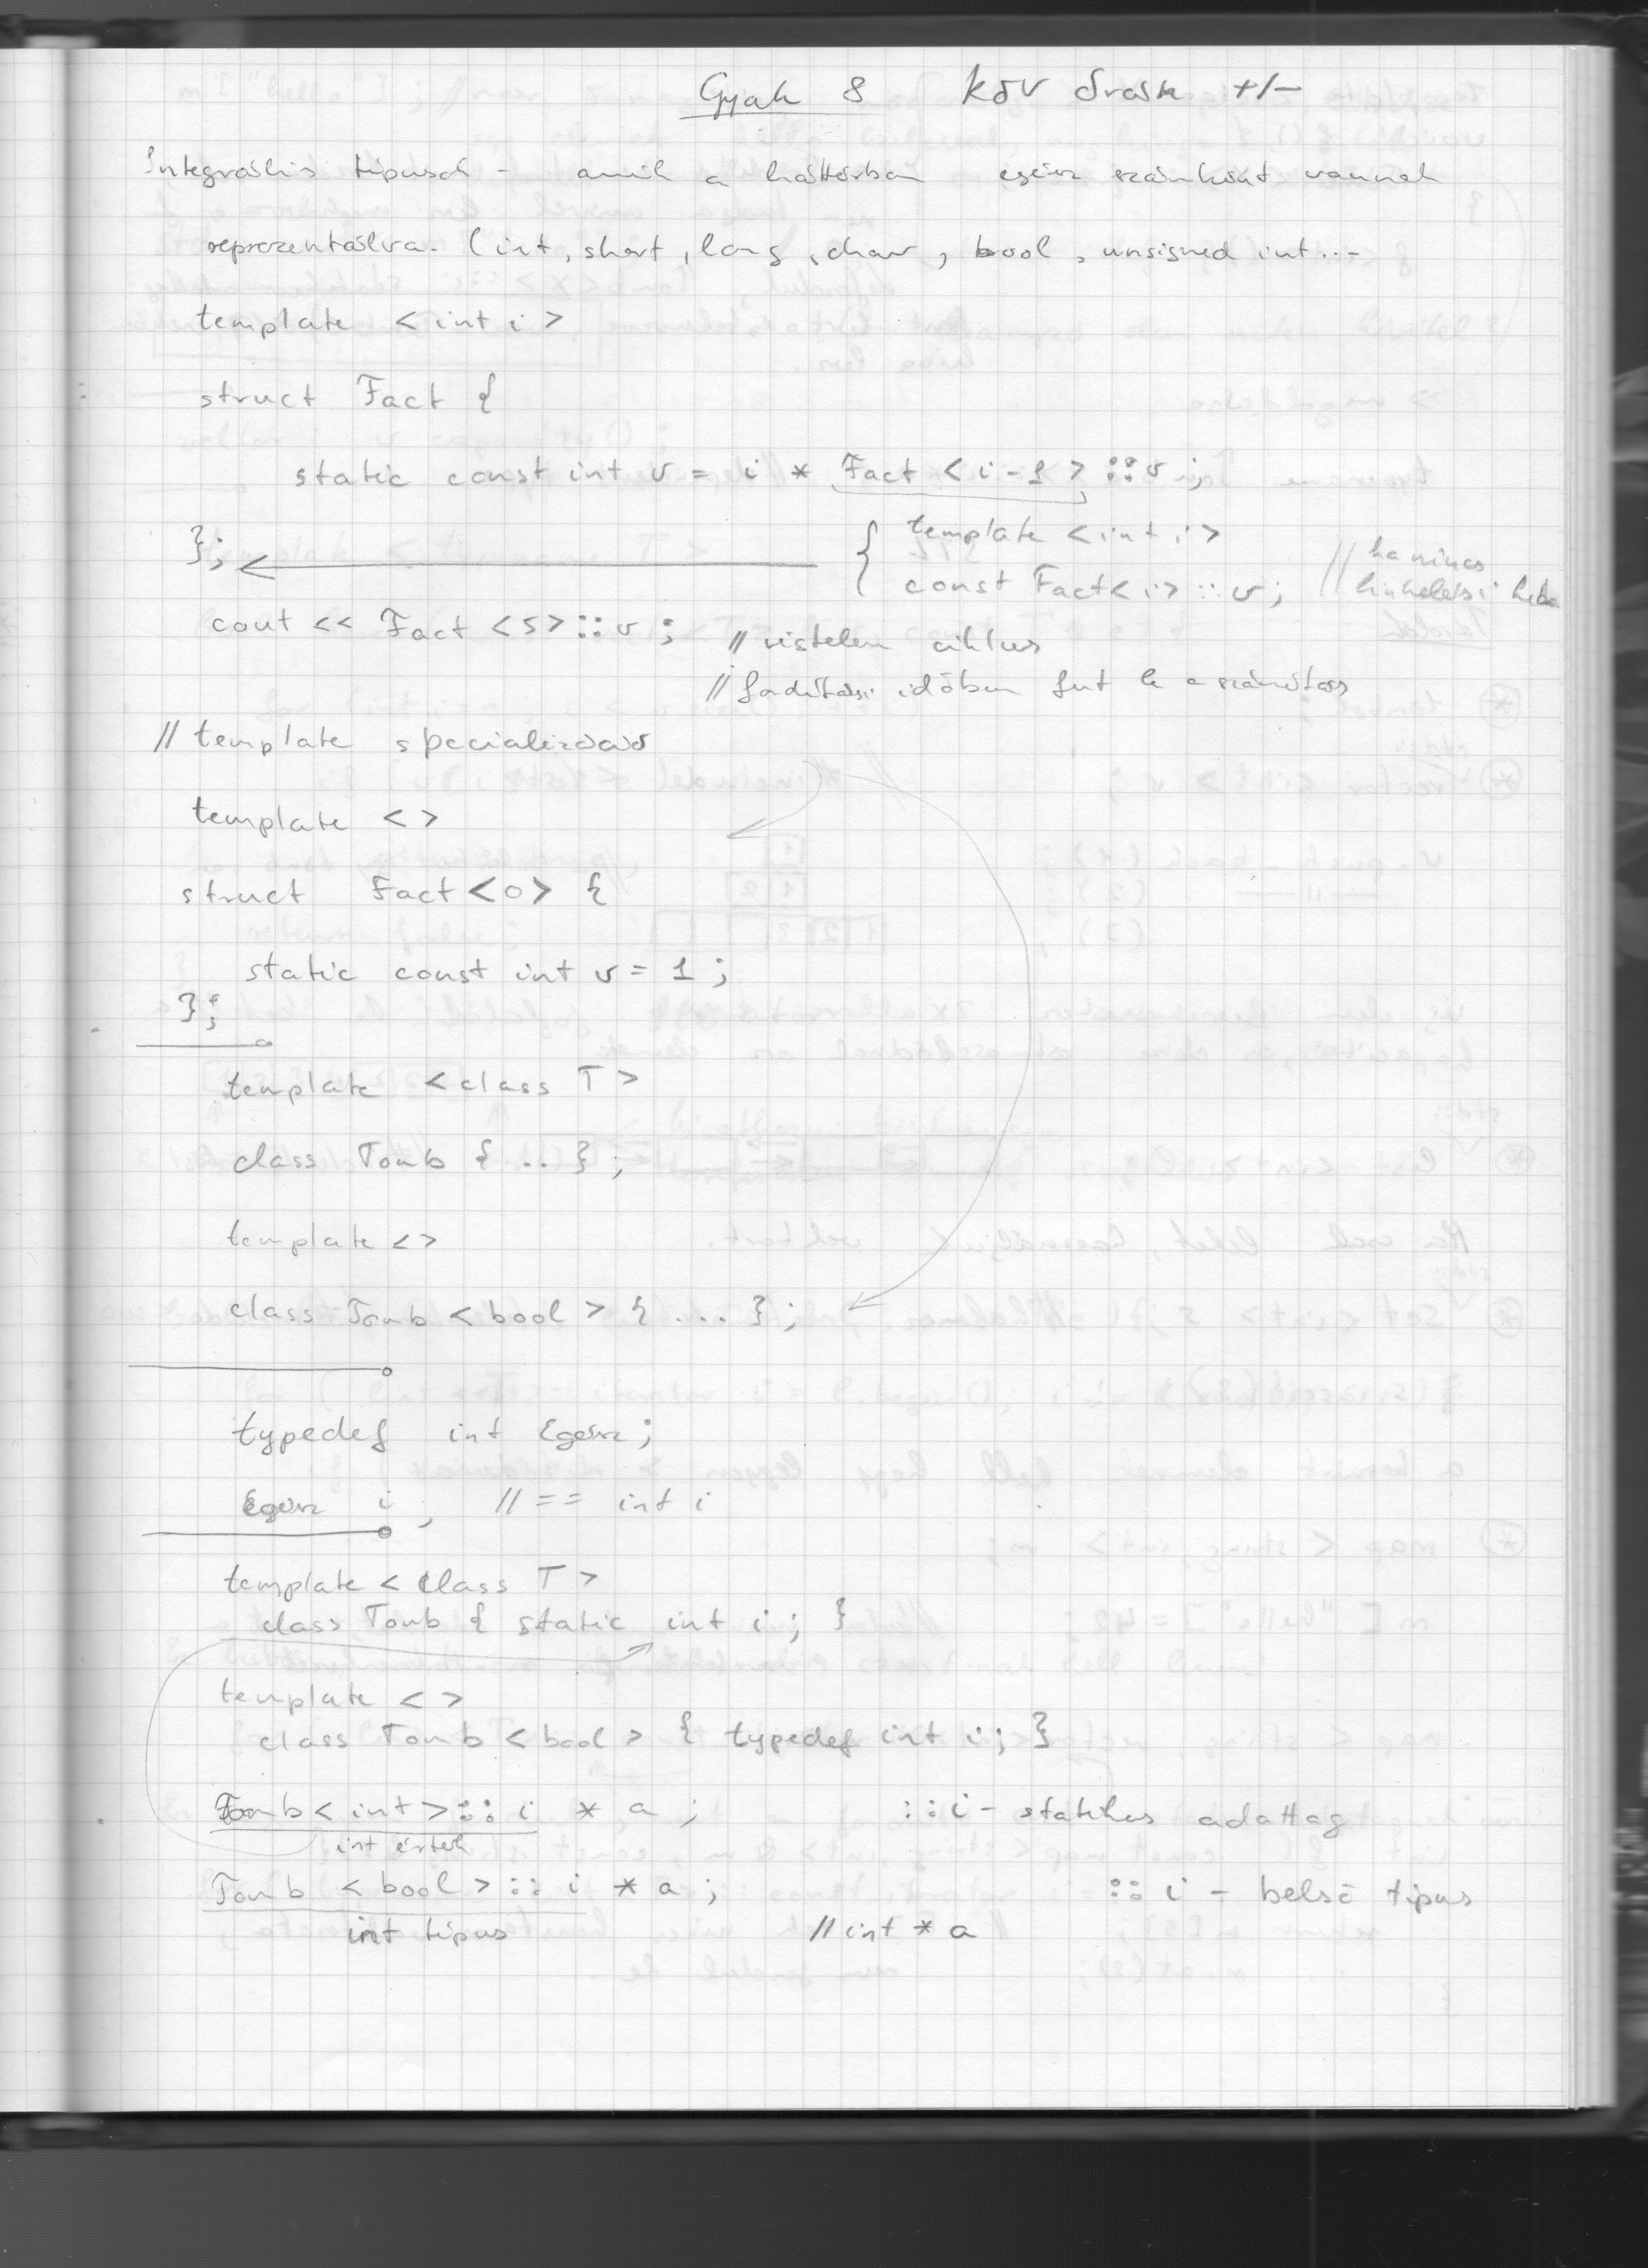 Gyak 8 köv órán +/-
Integrális típusok - amik a háttérben egész számként vannak
reprezentálva. (int, short, long, char, bool, unsigned int...
template <int i>
struct Fact {
static const int v = i * Fact <i-1> ::v;
};
{ template <int i>
const Fact<i> ::v;
// ha nincs
linkelési hiba
cout << Fact <5>::v;
// végtelen ciklus
// fordítási időben fut le a számítás
// template specializáció
template <>
struct Fact<0> {
static const int v = 1;
};
template <class T>
class Tomb { .. };
template <>
class Tomb <bool> { ... };
typedef int Egész;
Egész i; // == int i
template <class T>
class Tomb { static int i; }
template <>
class Tomb <bool> { typedef int i; }
Tomb<int>::i * a; ::i - statikus adattag
int érték
Tomb <bool>::i * a; ::i - belső típus
int típus // int * a